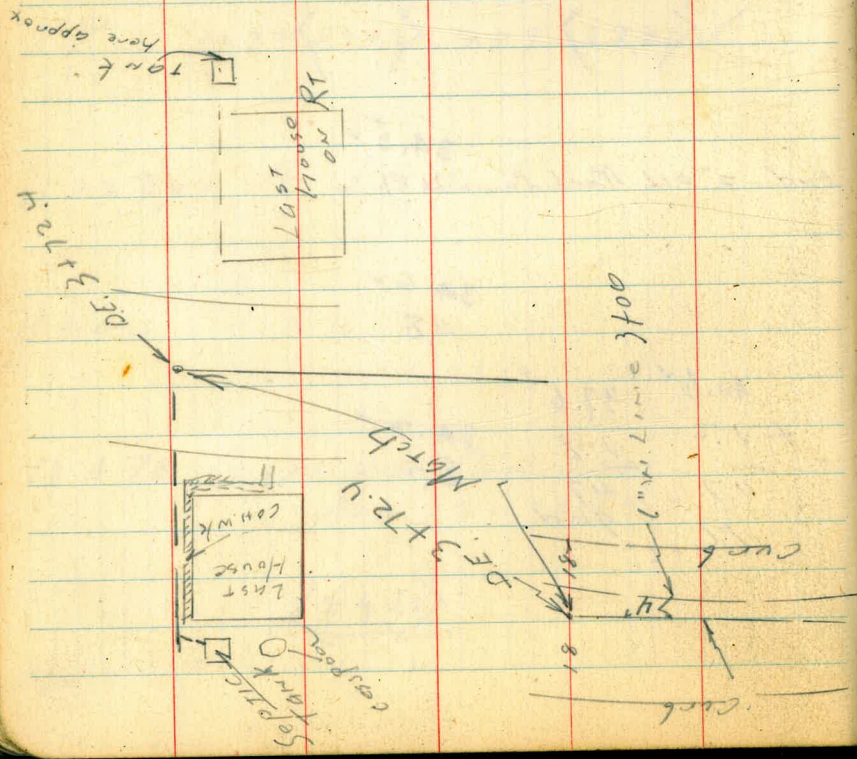 TANK
here approx
LAST
HOUSE
ON
RT
D.E. 3+72.4
Match
D.E. 3+72.4
con. wk
LAST
House
Septic
Tank
cesspool
18'
18
4"
Curb
Curb